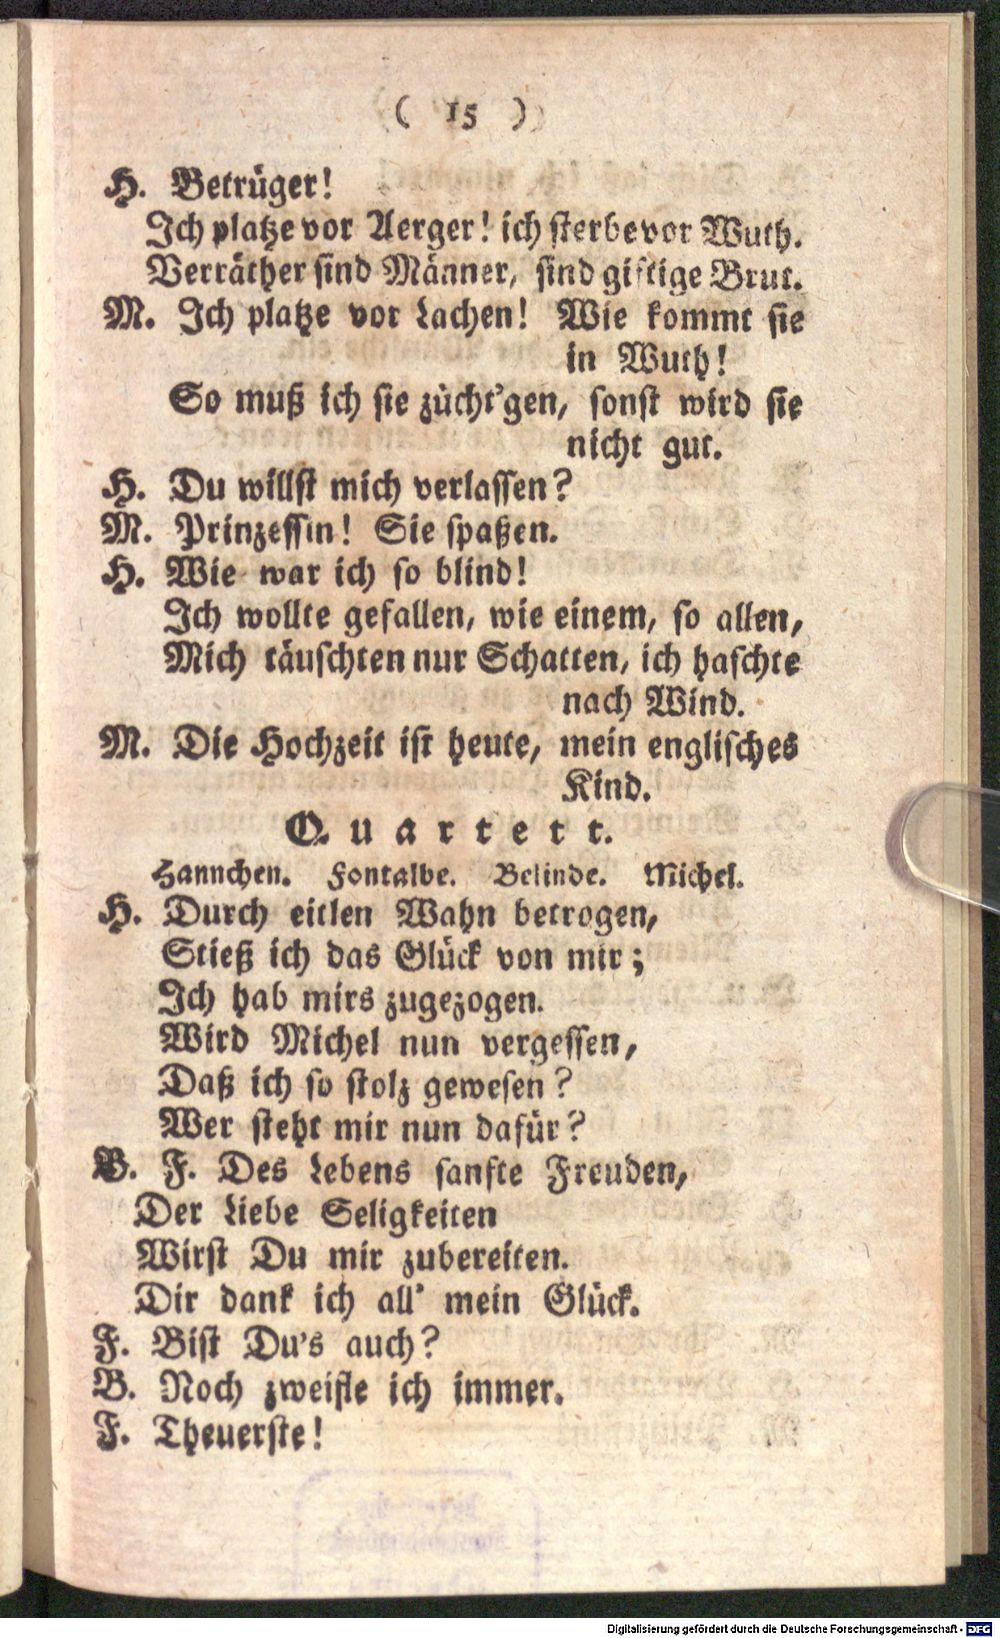 ( 15 )
H. Betrüger!
Ich platze vor Aerger! ich sterbe vor Wuth.
Verräther sind Männer, sind giftige Brut.
M. Ich platze vor Lachen! Wie kommt sie
in Wuth!
So muß ich sie zücht'gen, sonst wird sie
nicht gut.
H. Du willst mich verlassen?
M. Prinzessin! Sie spaßen.
H. Wie war ich so blind!
Ich wollte gefallen, wie einem, so allen,
Mich täuschten nur Schatten, ich haschte
nach Wind.
M. Die Hochzeit ist heute, mein englisches
Kind.
Quartett.
Hannchen. Fontalbe. Belinde. Michel.
H. Durch eitlen Wahn betrogen,
Stieß ich das Glück von mir;
Ich hab mirs zugezogen.
Wird Michel nun vergessen,
Daß ich so stolz gewesen?
Wer steht mir nun dafür?
B. F. Des Lebens sanfte Freuden,
Der Liebe Seligkeiten
Wirst Du mir zubereiten.
Dir dank ich all' mein Glück.
F. Bist Du's auch?
B. Noch zweifle ich immer.
F. Theuerste!
Digitalisierung gefördert durch die Deutsche Forschungsgemeinschaft - DFG